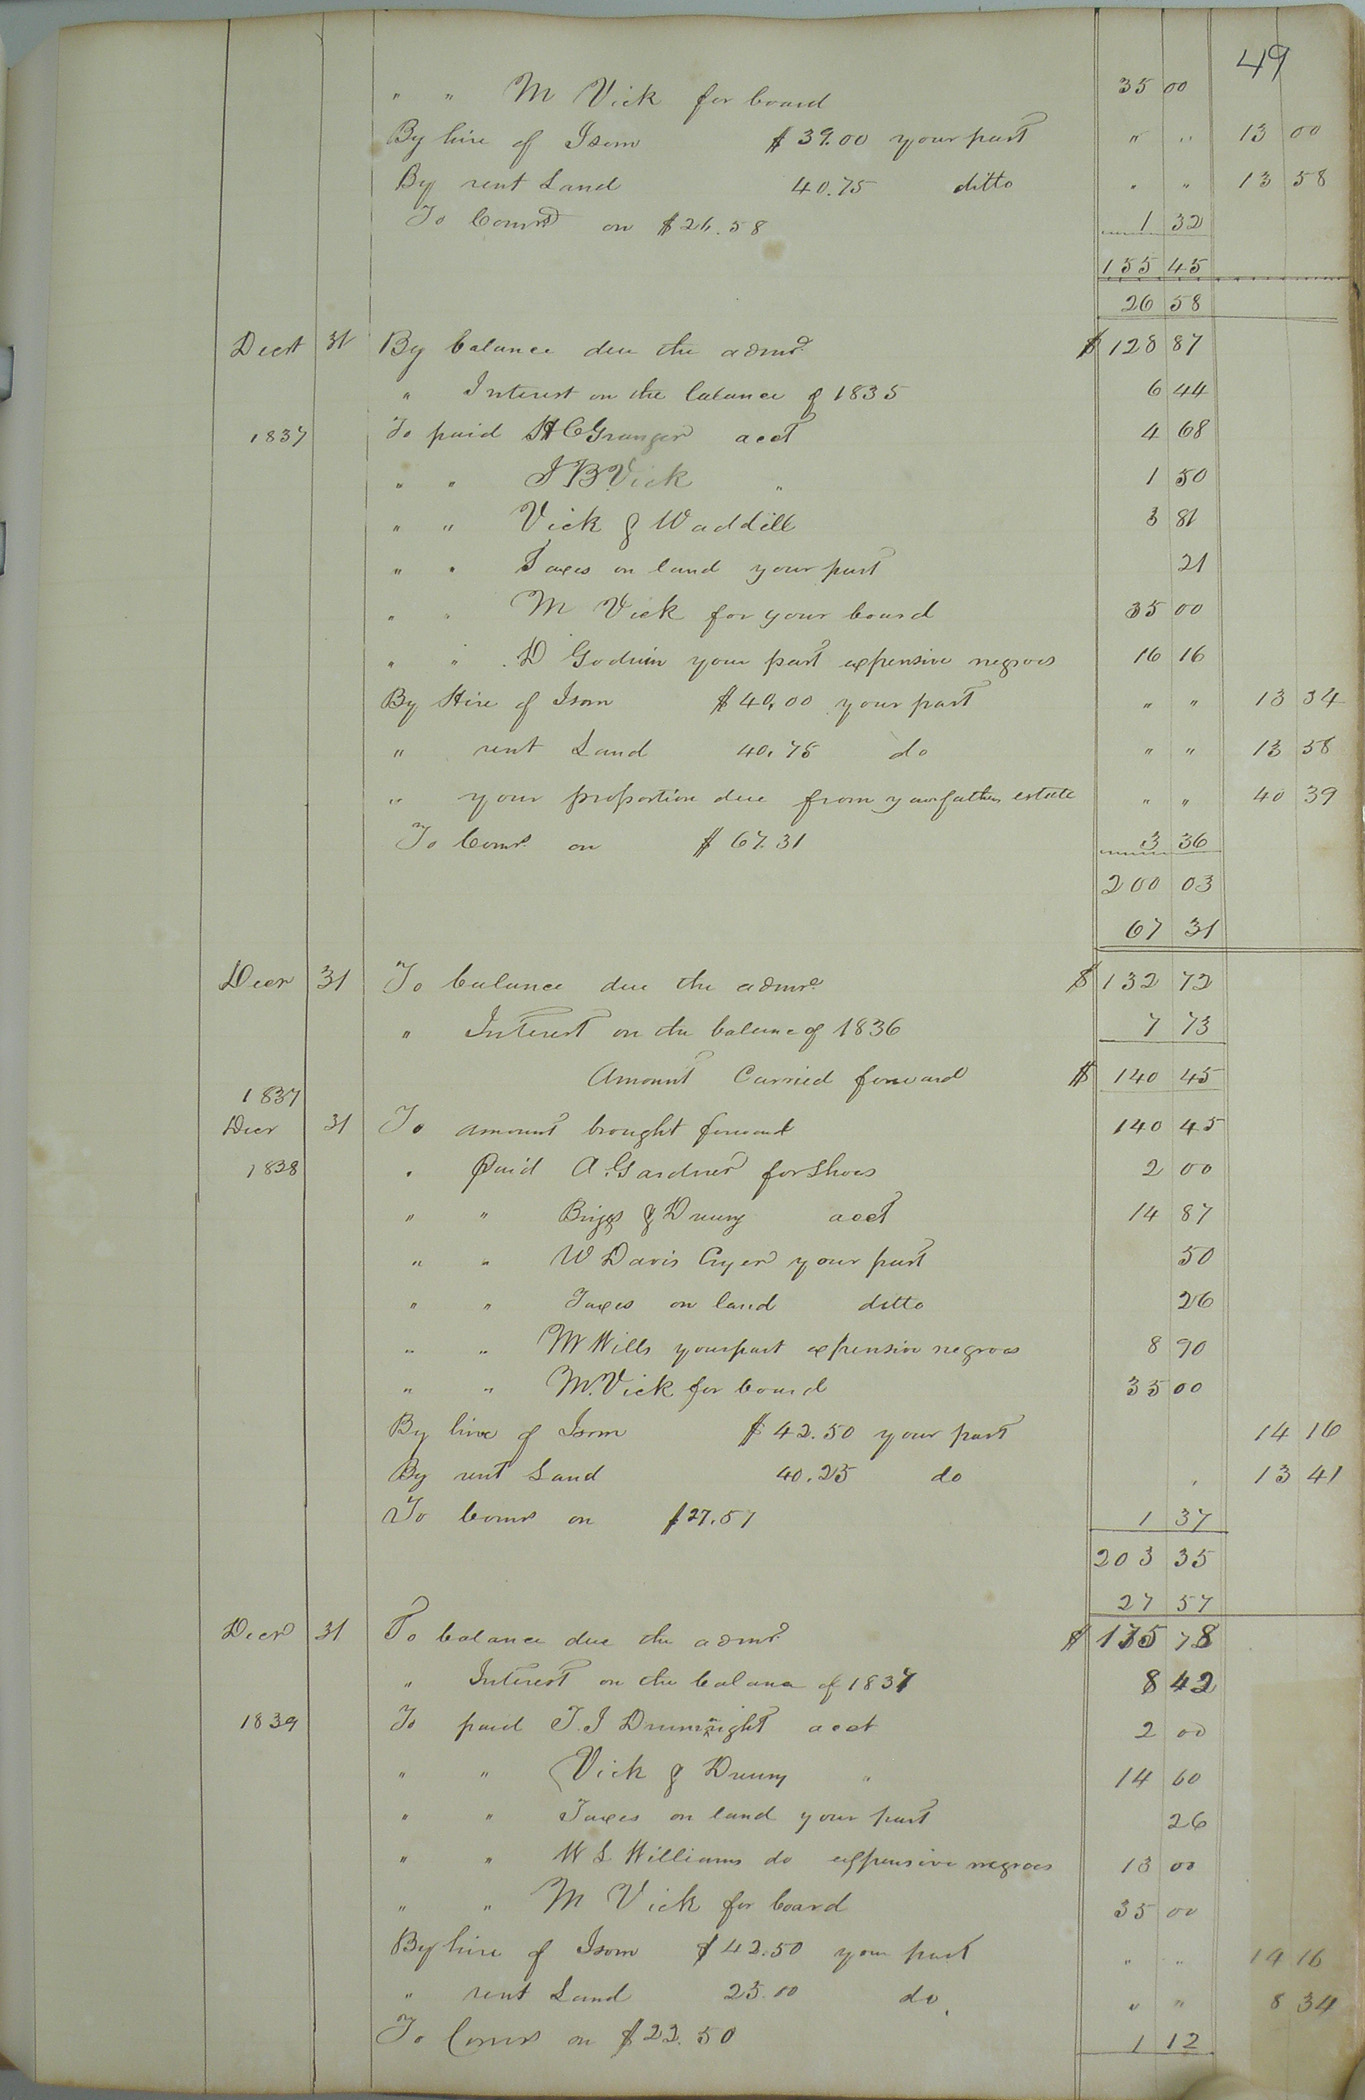 49
" " M Vick for board 35 00
By hire of Isom $39.00 your part " " 13 00
By rent Land 40.75 ditto " " 13 58
To Comrs on $26.58 1 32
155 45
26 58
Decr 31 By balance due the admr $128 87
" Interest on the balance of 1835 6 44
1837 To paid H C Granger acct 4 68
" " J B Vick " 1 50
" " Vick & Waddill 3 81
" " Taxes on land your part 21
" " M Vick for your board 35 00
" " D Godwin your part expensive negroes 16 16
By Hire of Isom $40,00 your part " " 13 34
" rent Land 40.75 do " " 13 58
" your proportion due from your fathers estate " " 40 39
To Comrs on $67.31 3 36
200 03
67 31
Decr 31 To balance due the admr $132 72
" Interest on the balance of 1836 7 73
Amount Carried forward $140 45
1837
Decr 31 To amount brought forward 140 45
1838 " Paid A. Gardner for Shoes 2 00
" " Briggs & Drury acct 14 87
" " W Davis Cryer your part 50
" " Taxes on land ditto 26
" " M Wills your part expensive negroes 8 90
" " M. Vick for board 35 00
By hire of Isom $42.50 your part 14 16
By rent Land 40.25 do 13 41
To Comrs on $27.57 1 37
203 35
27 57
Decr 31 To balance due the admr $175 78
" Interest on the balance of 1837 8 42
1839 To paid T. J Drumright acct 2 00
" " Vick & Drury " 14 60
" " Taxes on land your part 26
" " W L Williams do expensive negroes 13 00
" " M Vick for board 35 00
By hire of Isom $42.50 your part " " 14 16
" rent Land 25.00 do. " " 8 34
To Comrs on $22.50 1 12